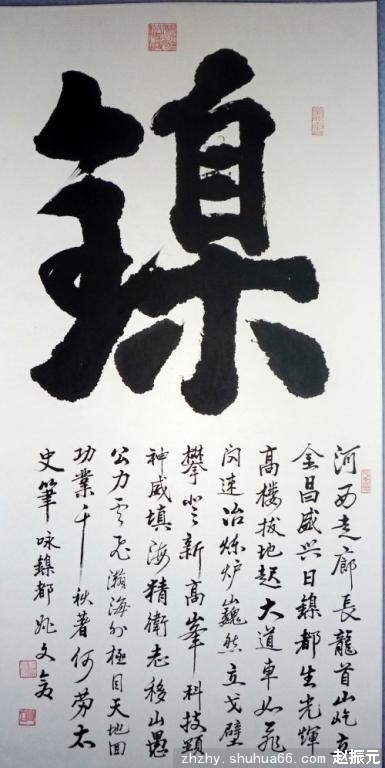 鎳
河西走廊長龍首山屹立
金昌盛興日鎳都生光輝
高樓拔地起大道車如飛
閃速冶煉炉巍然立戈壁
攀登新高峯科技顯
神威填海精衛志移山愚
公力雲飛瀚海外極目天地回
功業千秋著何勞太
史筆 咏鎳都 姚文倉
zhzhy.shuhua66.com 赵振元